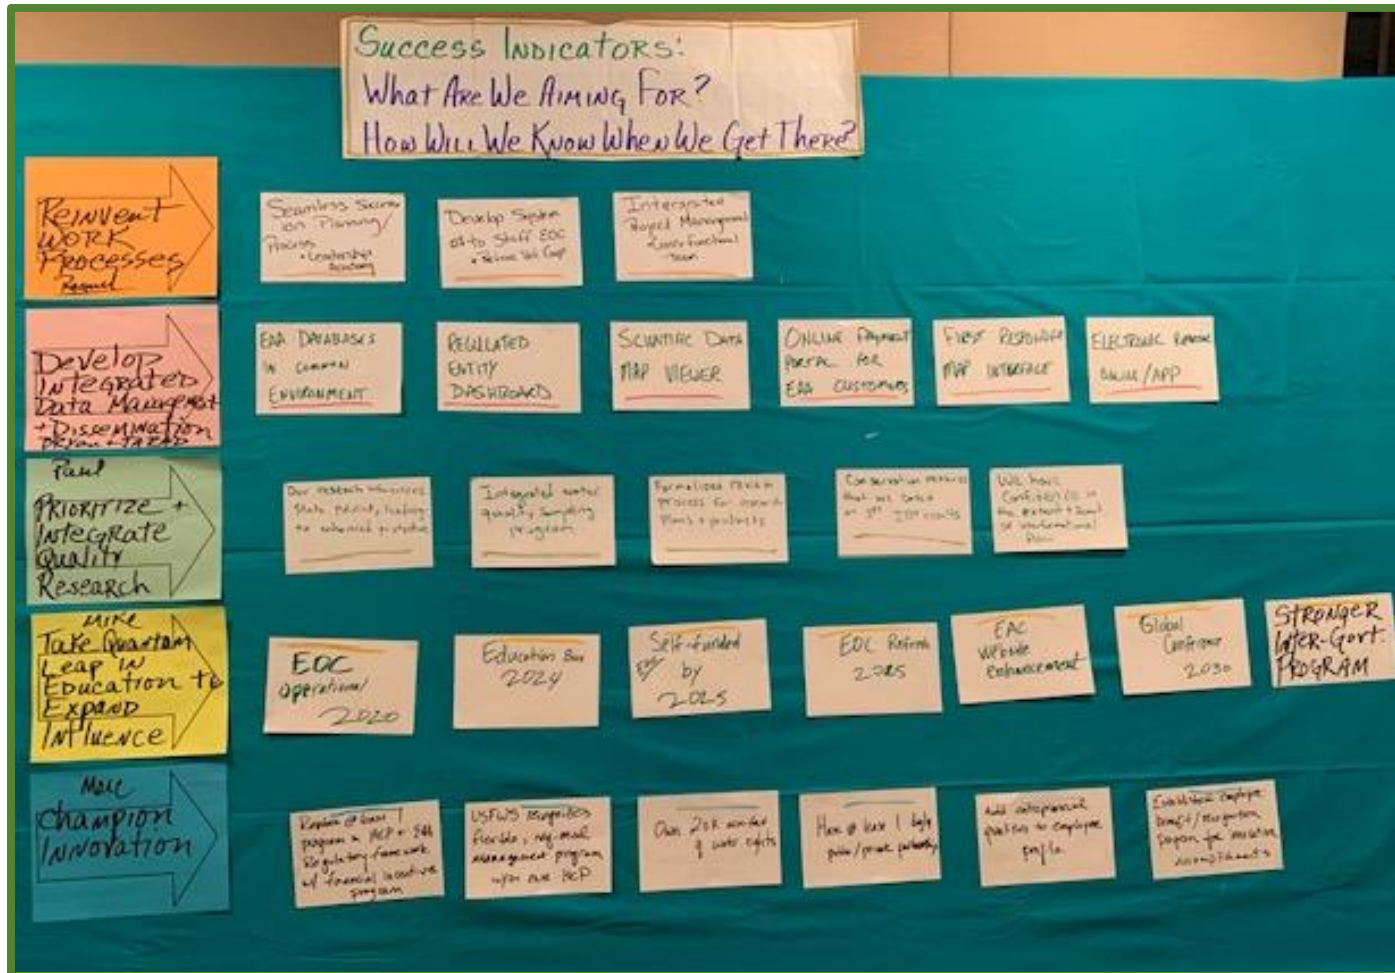 Success Indicators:
What Are We Aiming For?
How Will We Know When We Get There?
Reinvent
Work
Processes
Raquel
Seamless Success
ion Planning/
Process
+ Leadership
Academy
Develop System
to Staff EOC
Integrated
Project Management
Cross Functional
Team
Develop
Integrated
Data Management
+ Dissemination
EAA Databases
in Common
Environment
Regulated
Entity
Dashboard
Scientific Data
Map Viewer
Online Payment
Portal for
EAA Customers
First Responder
Map Interface
Electronic
Online/App
Paul
Prioritize +
Integrate
Quality
Research
Our research influences
State policy, leading
to enhanced
Integrated water
quality sampling
program
Formalized review
process for research
plans + products
Conservation measures
that are based
on
results
We have
confidence in
the extent +
of
flow
Mike
Take Quantum
Leap in
Education to
Expand
Influence
EOC
operational
2020
Education Bus
2024
Self-funded
by
2025
EOC Refresh
2025
EAC
Website
Enhancement
Global
Conference
2030
Stronger
Inter-Govt.
Program
Marc
Champion
Innovation
Replace at least 1
program in HCP + EAA
Regulatory framework
w/ financial incentive
program
USFWS recognizes
flexible, regional
management program
w/in our HCP
Own 20K acre-feet
of water rights
Have at least 1
public/private partnership
Add entrepreneurial
qualities to employee
profile
Establish employee
/recognition
program for innovation
accomplishments